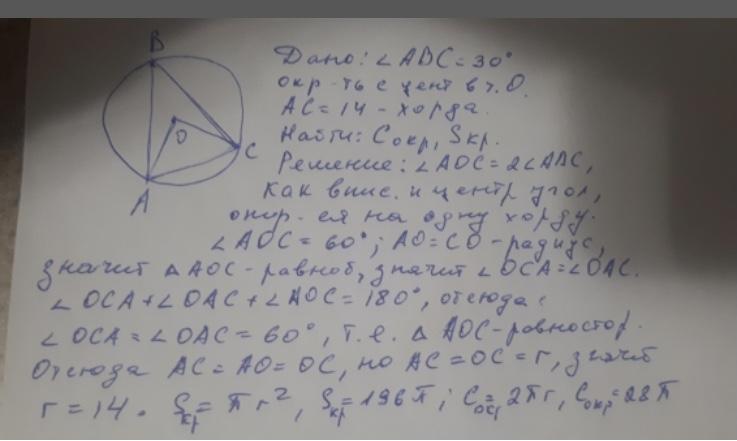 B
Дано: ∠ABC = 30°
окр-ть с цент в т. О.
AC = 14 - хорда.
Найти: Cокр, Sкр.
O
C
Решение: ∠AOC = 2∠ABC,
как впис. и центр угол,
A
опир-ся на одну хорду.
∠AOC = 60°; AO = CO - радиус,
значит △AOC - равноб, значит ∠OCA = ∠OAC.
∠OCA + ∠OAC + ∠AOC = 180°, отсюда:
∠OCA = ∠OAC = 60°, т.е. △ AOC - равностор.
Отсюда AC = AO = OC, но AC = OC = r, значит
r = 14. Sкр = πr², Sкр = 196π; Cокр = 2πr, Cокр = 28π